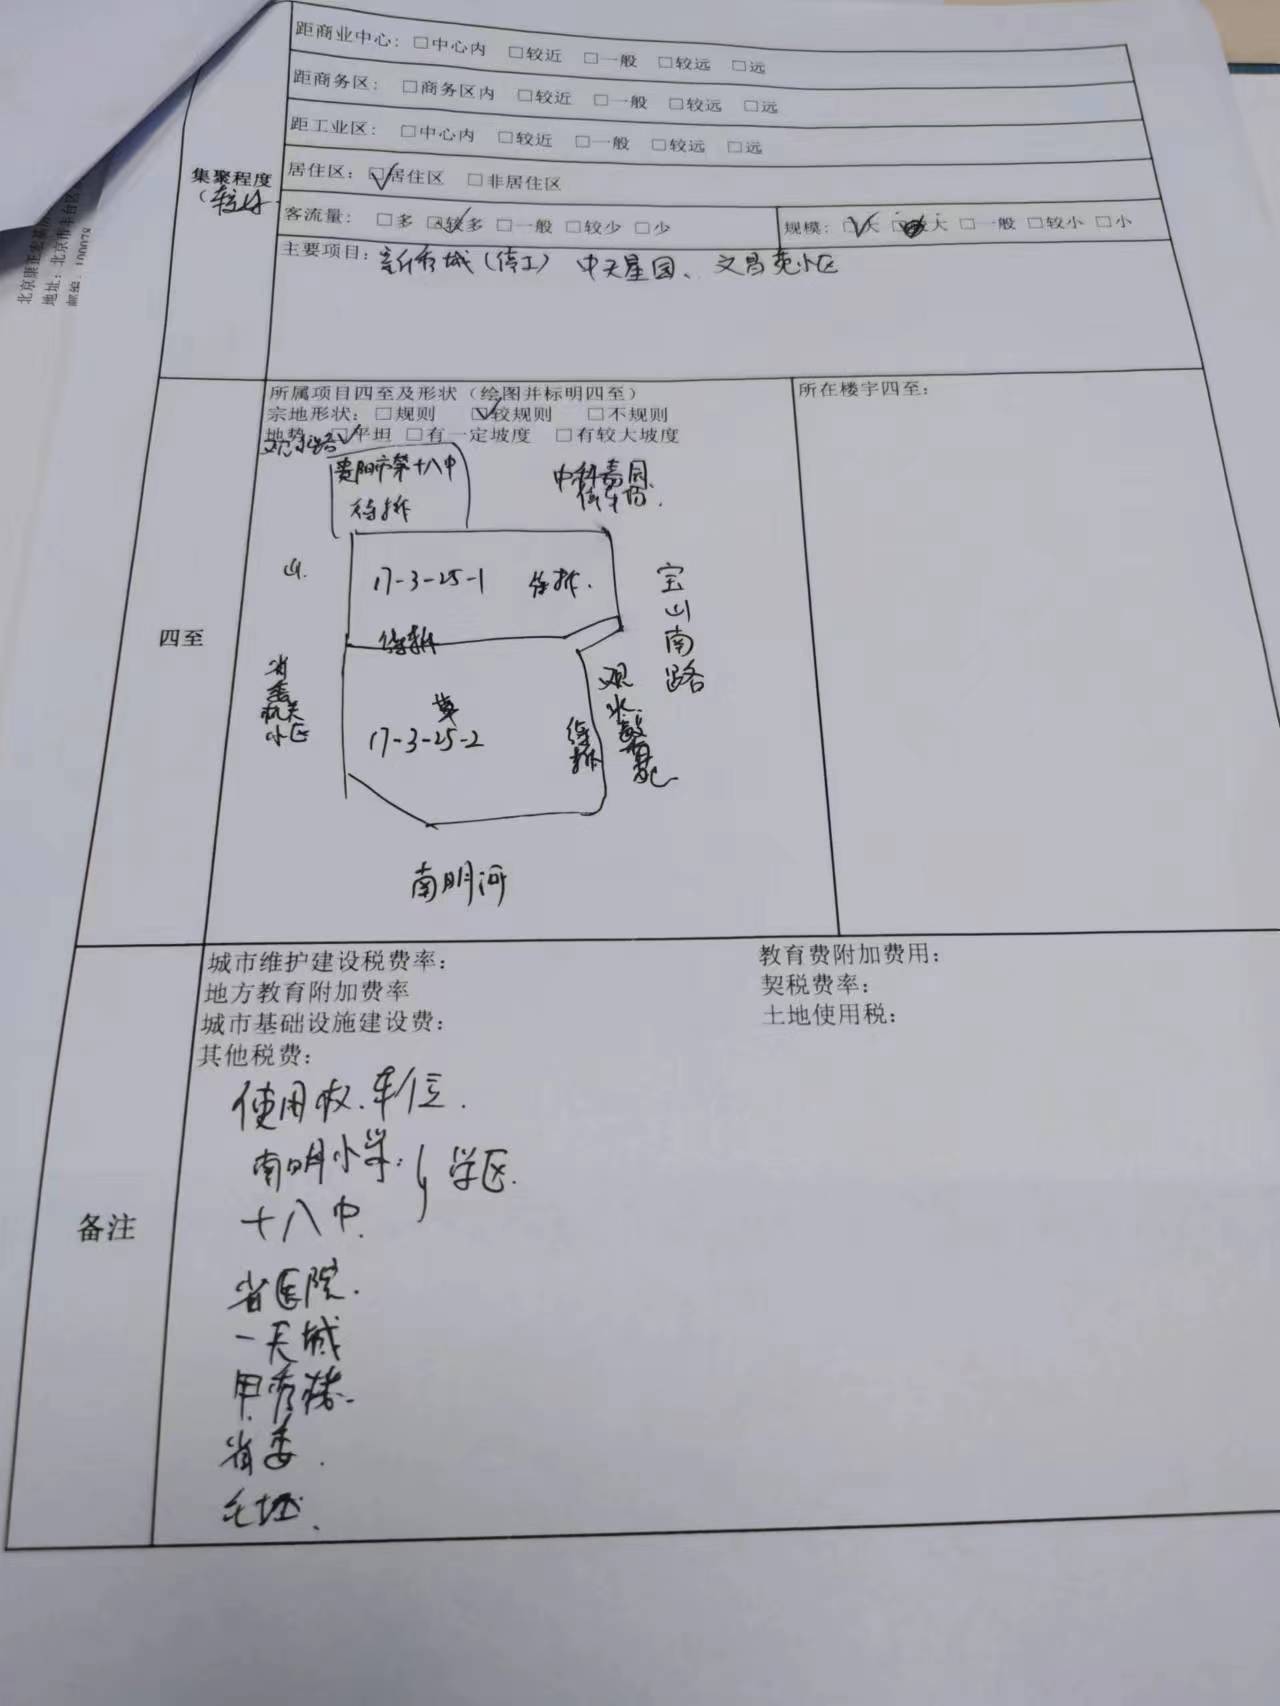 距商业中心：□中心内 □较近 □一般 □较远 □远
距商务区：□商务区内 □较近 □一般 □较远 □远
距工业区：□中心内 □较近 □一般 □较远 □远
集聚程度
（较好
居住区：☑居住区 □非居住区
客流量：□多 ☑较多 □一般 □较少 □少
规模：☑大 □较大 □一般 □较小 □小
主要项目：新 城（停工） 中天星园、文昌苑小区
北京康正宏基
地址：北京市丰台区
邮编：100078
四至
所属项目四至及形状（绘图并标明四至）
宗地形状：□规则 ☑较规则 □不规则
地势：☑平坦 □有一定坡度 □有较大坡度
所在楼宇四至：
观水路
贵阳市第十八中
待拆
中科嘉园
停车场.
山.
17-3-25-1 待拆.
待拆
宝山南路
省委机关小区
草
17-3-25-2
待拆
观水
南明河
备注
城市维护建设税费率：
教育费附加费用：
地方教育附加费率
契税费率：
城市基础设施建设费：
土地使用税：
其他税费：
使用权.车位.
南明小学. } 学区.
十八中.
省医院.
一天城
甲秀楼.
省委.
毛坯.